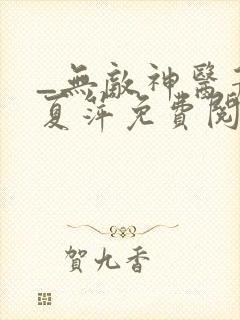 _無敵神醫
夏萍免費閱
賀九香